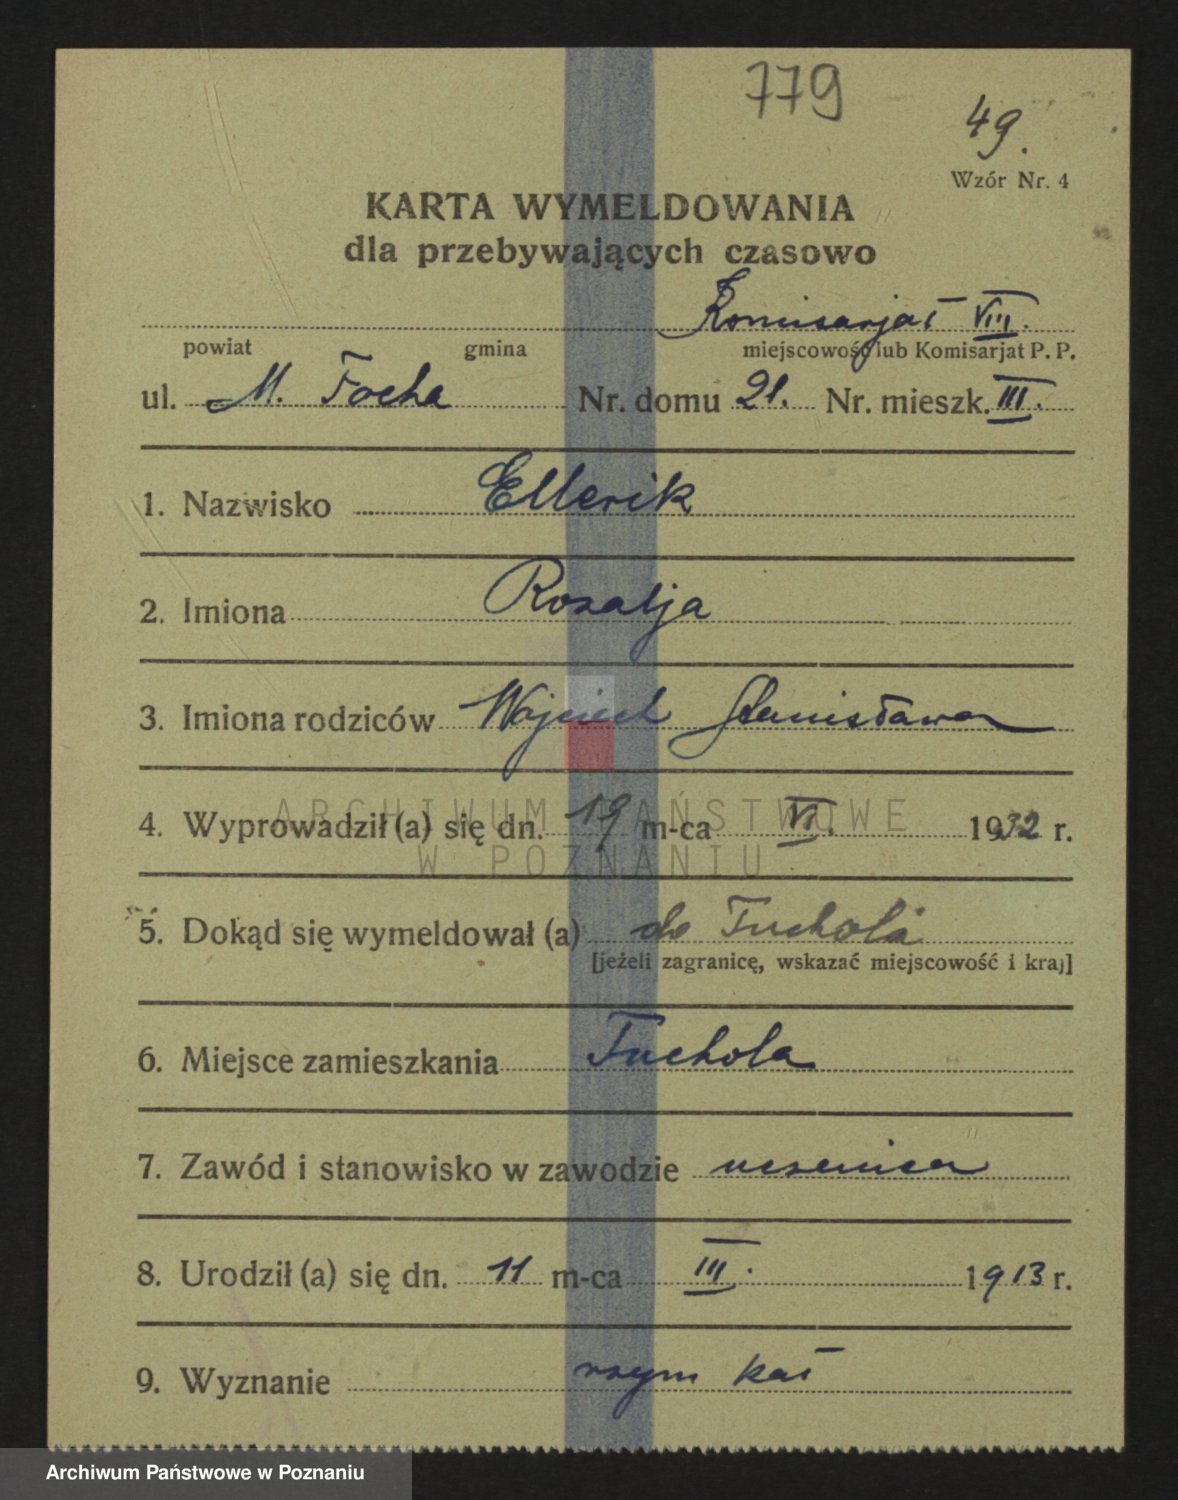 779
49.
Wzór Nr. 4
KARTA WYMELDOWANIA
dla przebywających czasowo
Komisarjat VIII.
powiat gmina miejscowość lub Komisarjat P. P.
ul. M. Focha Nr. domu 21. Nr. mieszk. III.
1. Nazwisko Ellerik
2. Imiona Rozalja
3. Imiona rodziców Wojciech Stanisława
4. Wyprowadził (a) się dn. 19 m-ca VI. 1932 r.
ARCHIWUM PAŃSTWOWE
W POZNANIU
5. Dokąd się wymeldował (a) do Tuchola
[jeżeli zagranicę, wskazać miejscowość i kraj]
6. Miejsce zamieszkania Tuchola
7. Zawód i stanowisko w zawodzie uczenica
8. Urodził (a) się dn. 11 m-ca III. 1913 r.
9. Wyznanie rzym kat
Archiwum Państwowe w Poznaniu